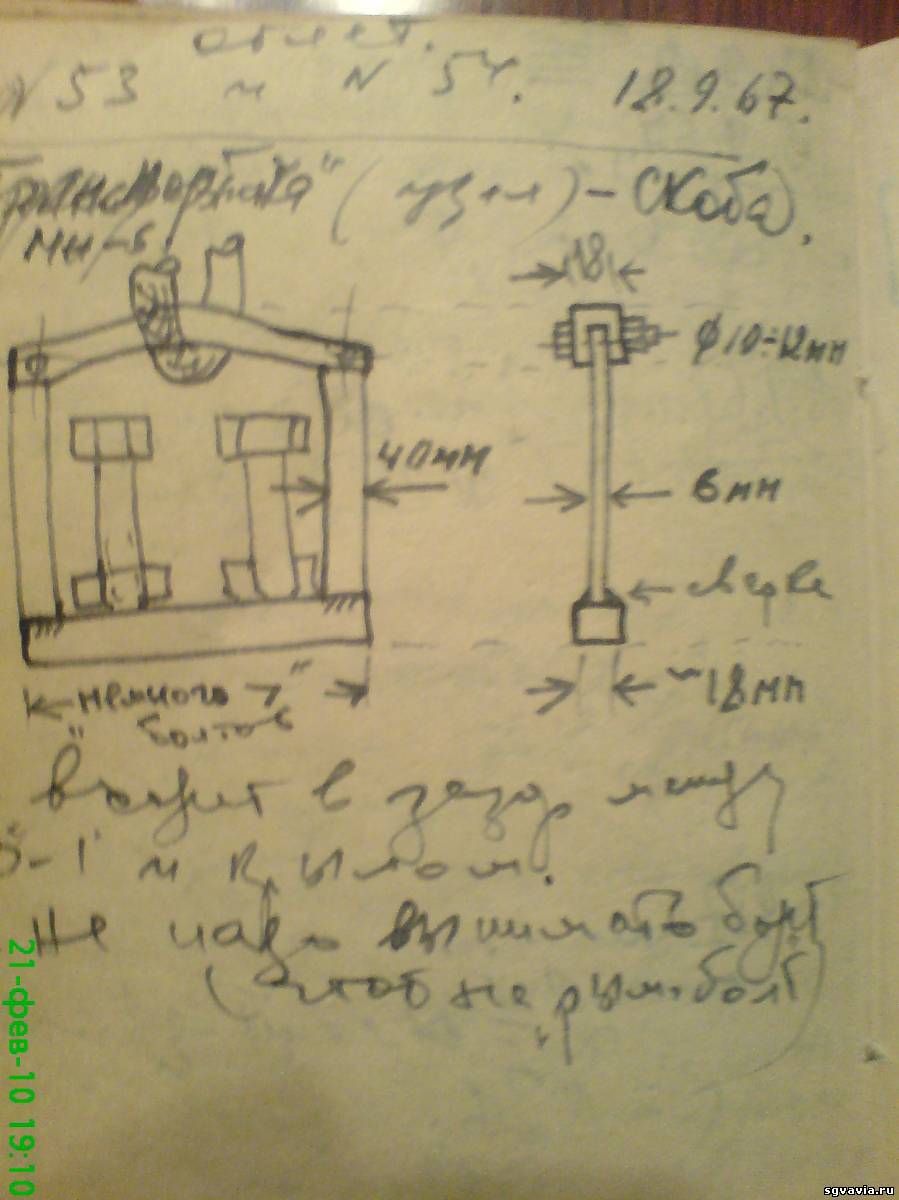 облет.
N 53 и N 54. 18.9.67.
(узел) – Скоба.
МИ-6
18
ф 10÷12мм
40мм
6мм
сварка
"немного >"
болтов
~18мм
входит в зазор между
и крылом.
Не надо вынимать болт
(чтоб не рым-болт)
21-фев-10 19:10
sgvavia.ru